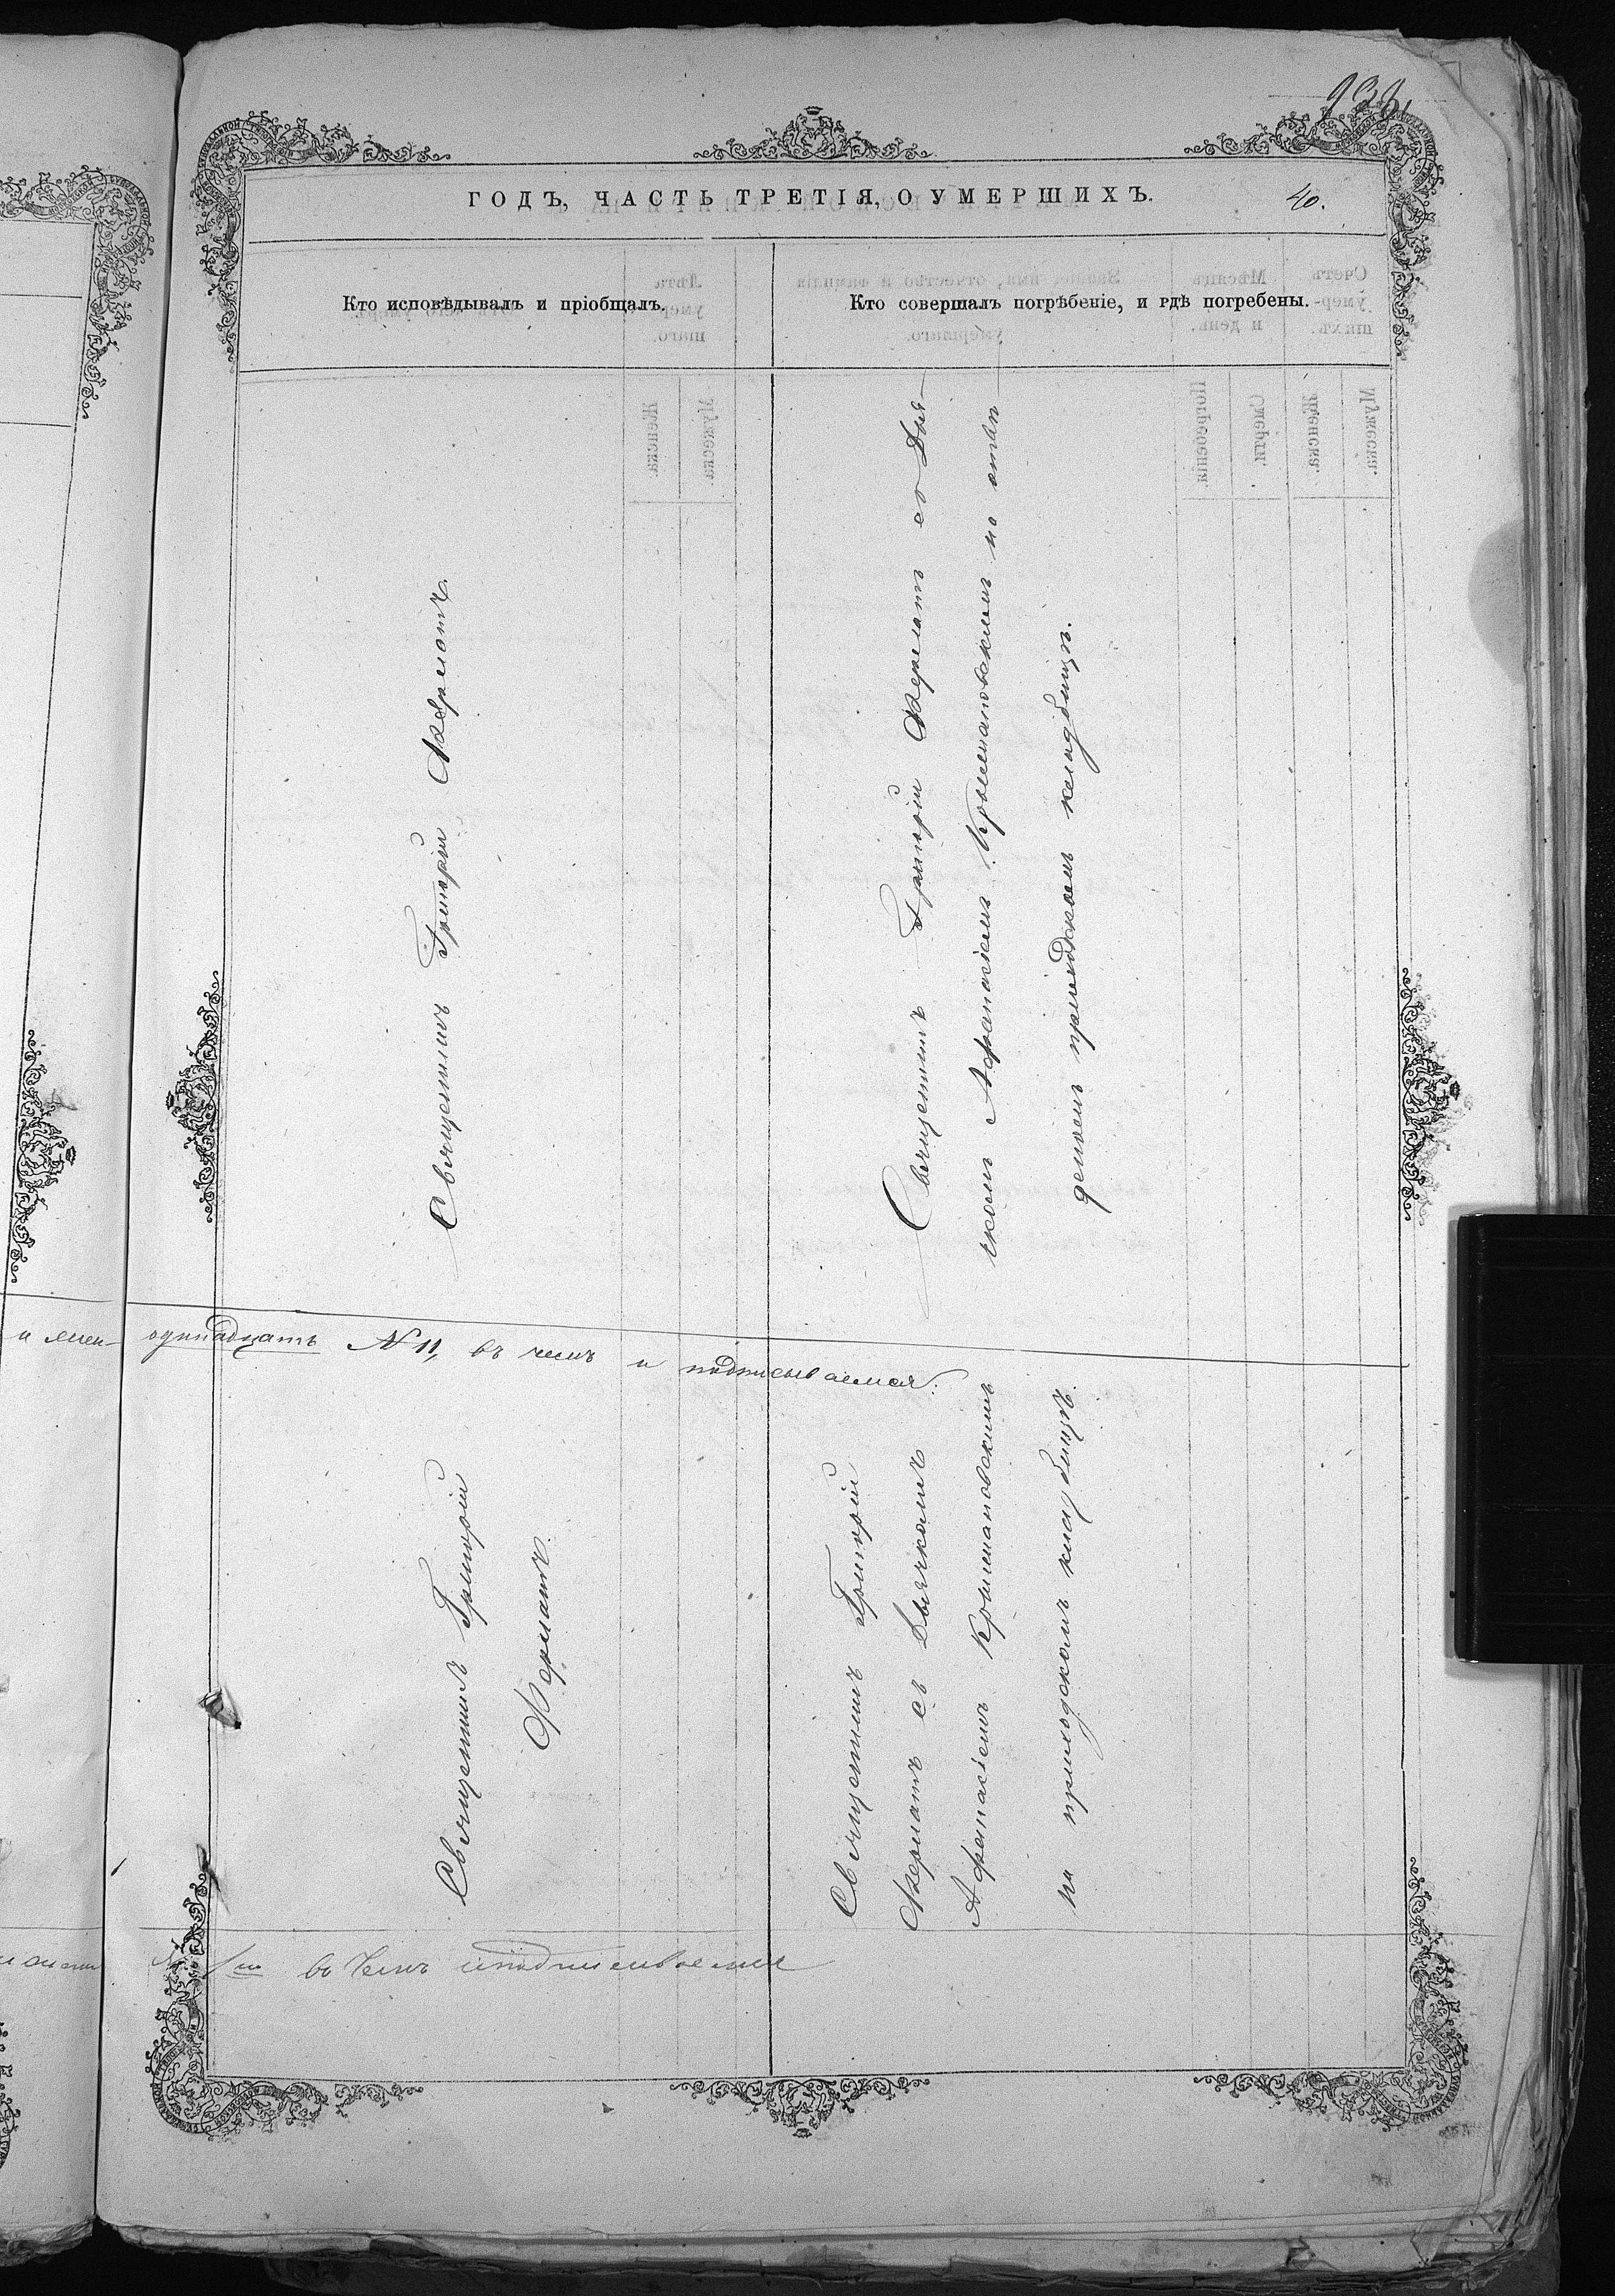 40.
ГОДЪ, ЧАСТЬ ТРЕТІЯ, О УМЕРШИХЪ.
Кто исповѣдывалъ и пріобщалъ.
Кто совершалъ погрѣбеніе, и гдѣ погребены.
Священникъ Григорій
Священникъ Григорій съ Дья-
комъ Афанасіемъ Крыжановскимъ на отве
денномъ приходскомъ кладбищѣ.
одинадцать № 11, въ чемъ и подписываемся:
Священникъ Григорій
Священникъ Григорій
съ Дьячкомъ
Афанасіемъ Крыжановскимъ
на приходскомъ кладбищѣ.
въ чемъ и подписываемся